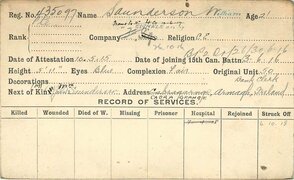 Reg. No. A35097 Name Saunderson William Age 21
Rank Company Religion P.C.
Date of Attestation 10.5.15 Date of joining 15th Can. Battn. 3-6-16
Height 5'11" Eyes Blue Complexion Fair Original Unit 30
Decorations Bank Clerk
Next of Kin Saunderson Address Armagh, Ireland
RECORD OF SERVICES.
Killed Wounded Died of W. Missing Prisoner Hospital Rejoined Struck Off
6.10.18